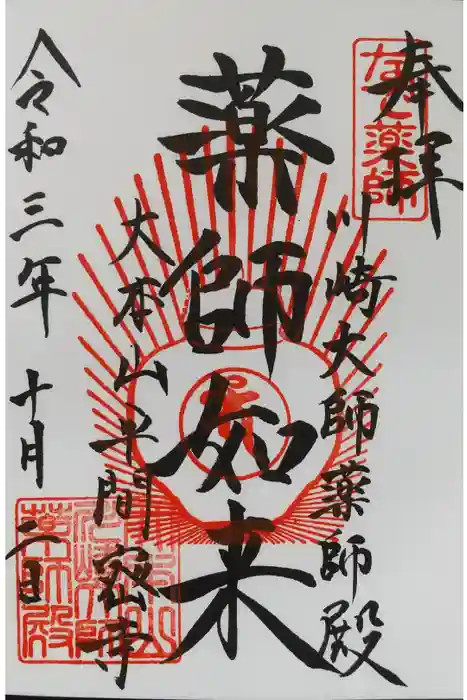 奉拝
なで薬師
川崎大師薬師殿
薬師如来
大本山平間密寺
令和三年十月二日
薬師殿